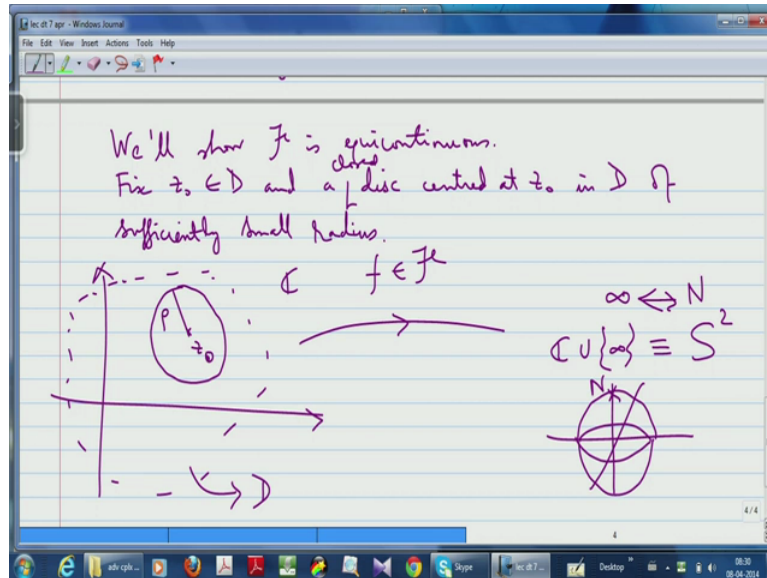 lec dt 7 apr - Windows Journal
File Edit View Insert Actions Tools Help
We'll show ℱ is equicontinuous.
closed
Fix z₀ ∈ D and a disc centred at z₀ in D of
sufficiently small radius.
ℂ f ∈ ℱ
∞ ↔ N
ρ
z₀
ℂ ∪ {∞} ≡ S²
N
D
4/4
4
adv cplx ...
Skype
lec dt 7 ...
Desktop
08:30
08-04-2014